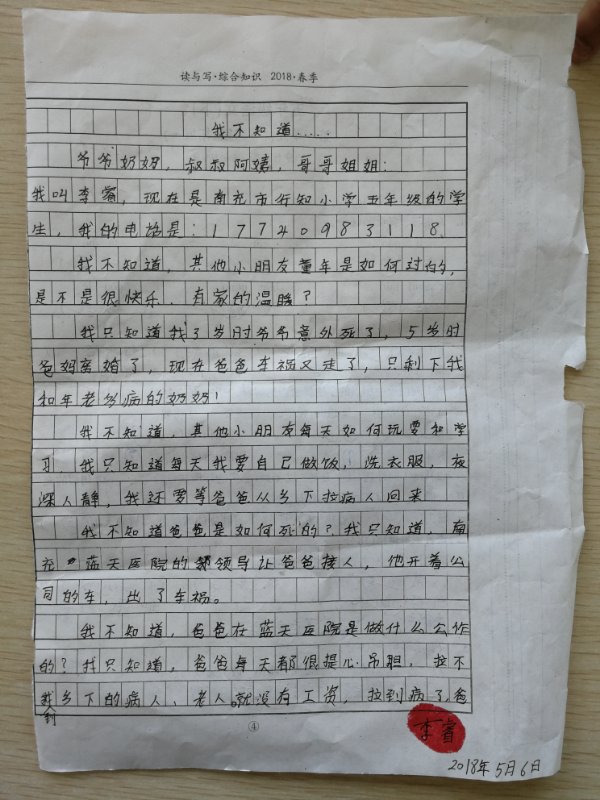 读与写·综合知识 2018·春季
我不知道.....
爷爷奶奶，叔叔阿姨，哥哥姐姐：
我叫李睿，现在是南充市行知小学五年级的学
生，我的电话是：17740983118
我不知道，其他小朋友童年是如何过的，
是不是很快乐、有家的温暖？
我只知道我3岁时爷爷意外死了，5岁时
爸妈离婚了，现在爸爸车祸又走了，只剩下我
和年老多病的奶奶！
我不知道，其他小朋友每天如何玩耍和学
习，我只知道每天我要自己做饭，洗衣服，夜
深人静，我还要等爸爸从乡下拉病人回来
我不知道爸爸是如何死的？我只知道，南
充蓝天医院的领导让爸爸接人，他开着公
司的车，出了车祸。
我不知道，爸爸在蓝天医院是做什么工作
的？我只知道，爸爸每天都很提心吊胆，拉不
到乡下的病人、老人。就没有工资，拉到病了爸
④
李睿
2018年5月6日